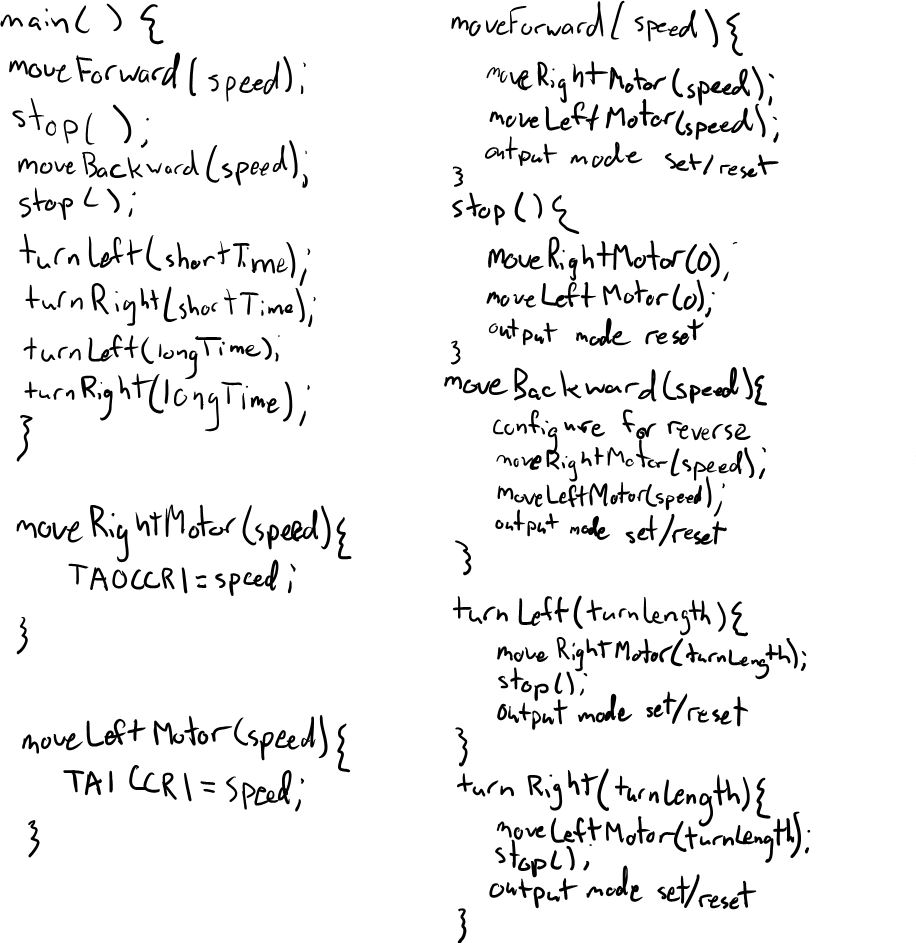 main() {
moveForward(speed);
stop();
moveBackward(speed);
stop();
turnLeft(shortTime);
turnRight(shortTime);
turnLeft(longTime);
turnRight(longTime);
}
moveRightMotor(speed){
TA0CCR1=speed;
}
moveLeftMotor(speed){
TA1CCR1=speed;
}
moveForward(speed){
moveRightMotor(speed);
moveLeftMotor(speed);
output mode set/reset
}
stop(){
moveRightMotor(0);
moveLeftMotor(0);
output mode reset
}
moveBackward(speed){
configure for reverse
moveRightMotor(speed);
moveLeftMotor(speed);
output mode set/reset
}
turnLeft(turnlength){
moveRightMotor(turnLength);
stop();
output mode set/reset
}
turnRight(turnlength){
moveLeftMotor(turnlength);
stop();
output mode set/reset
}